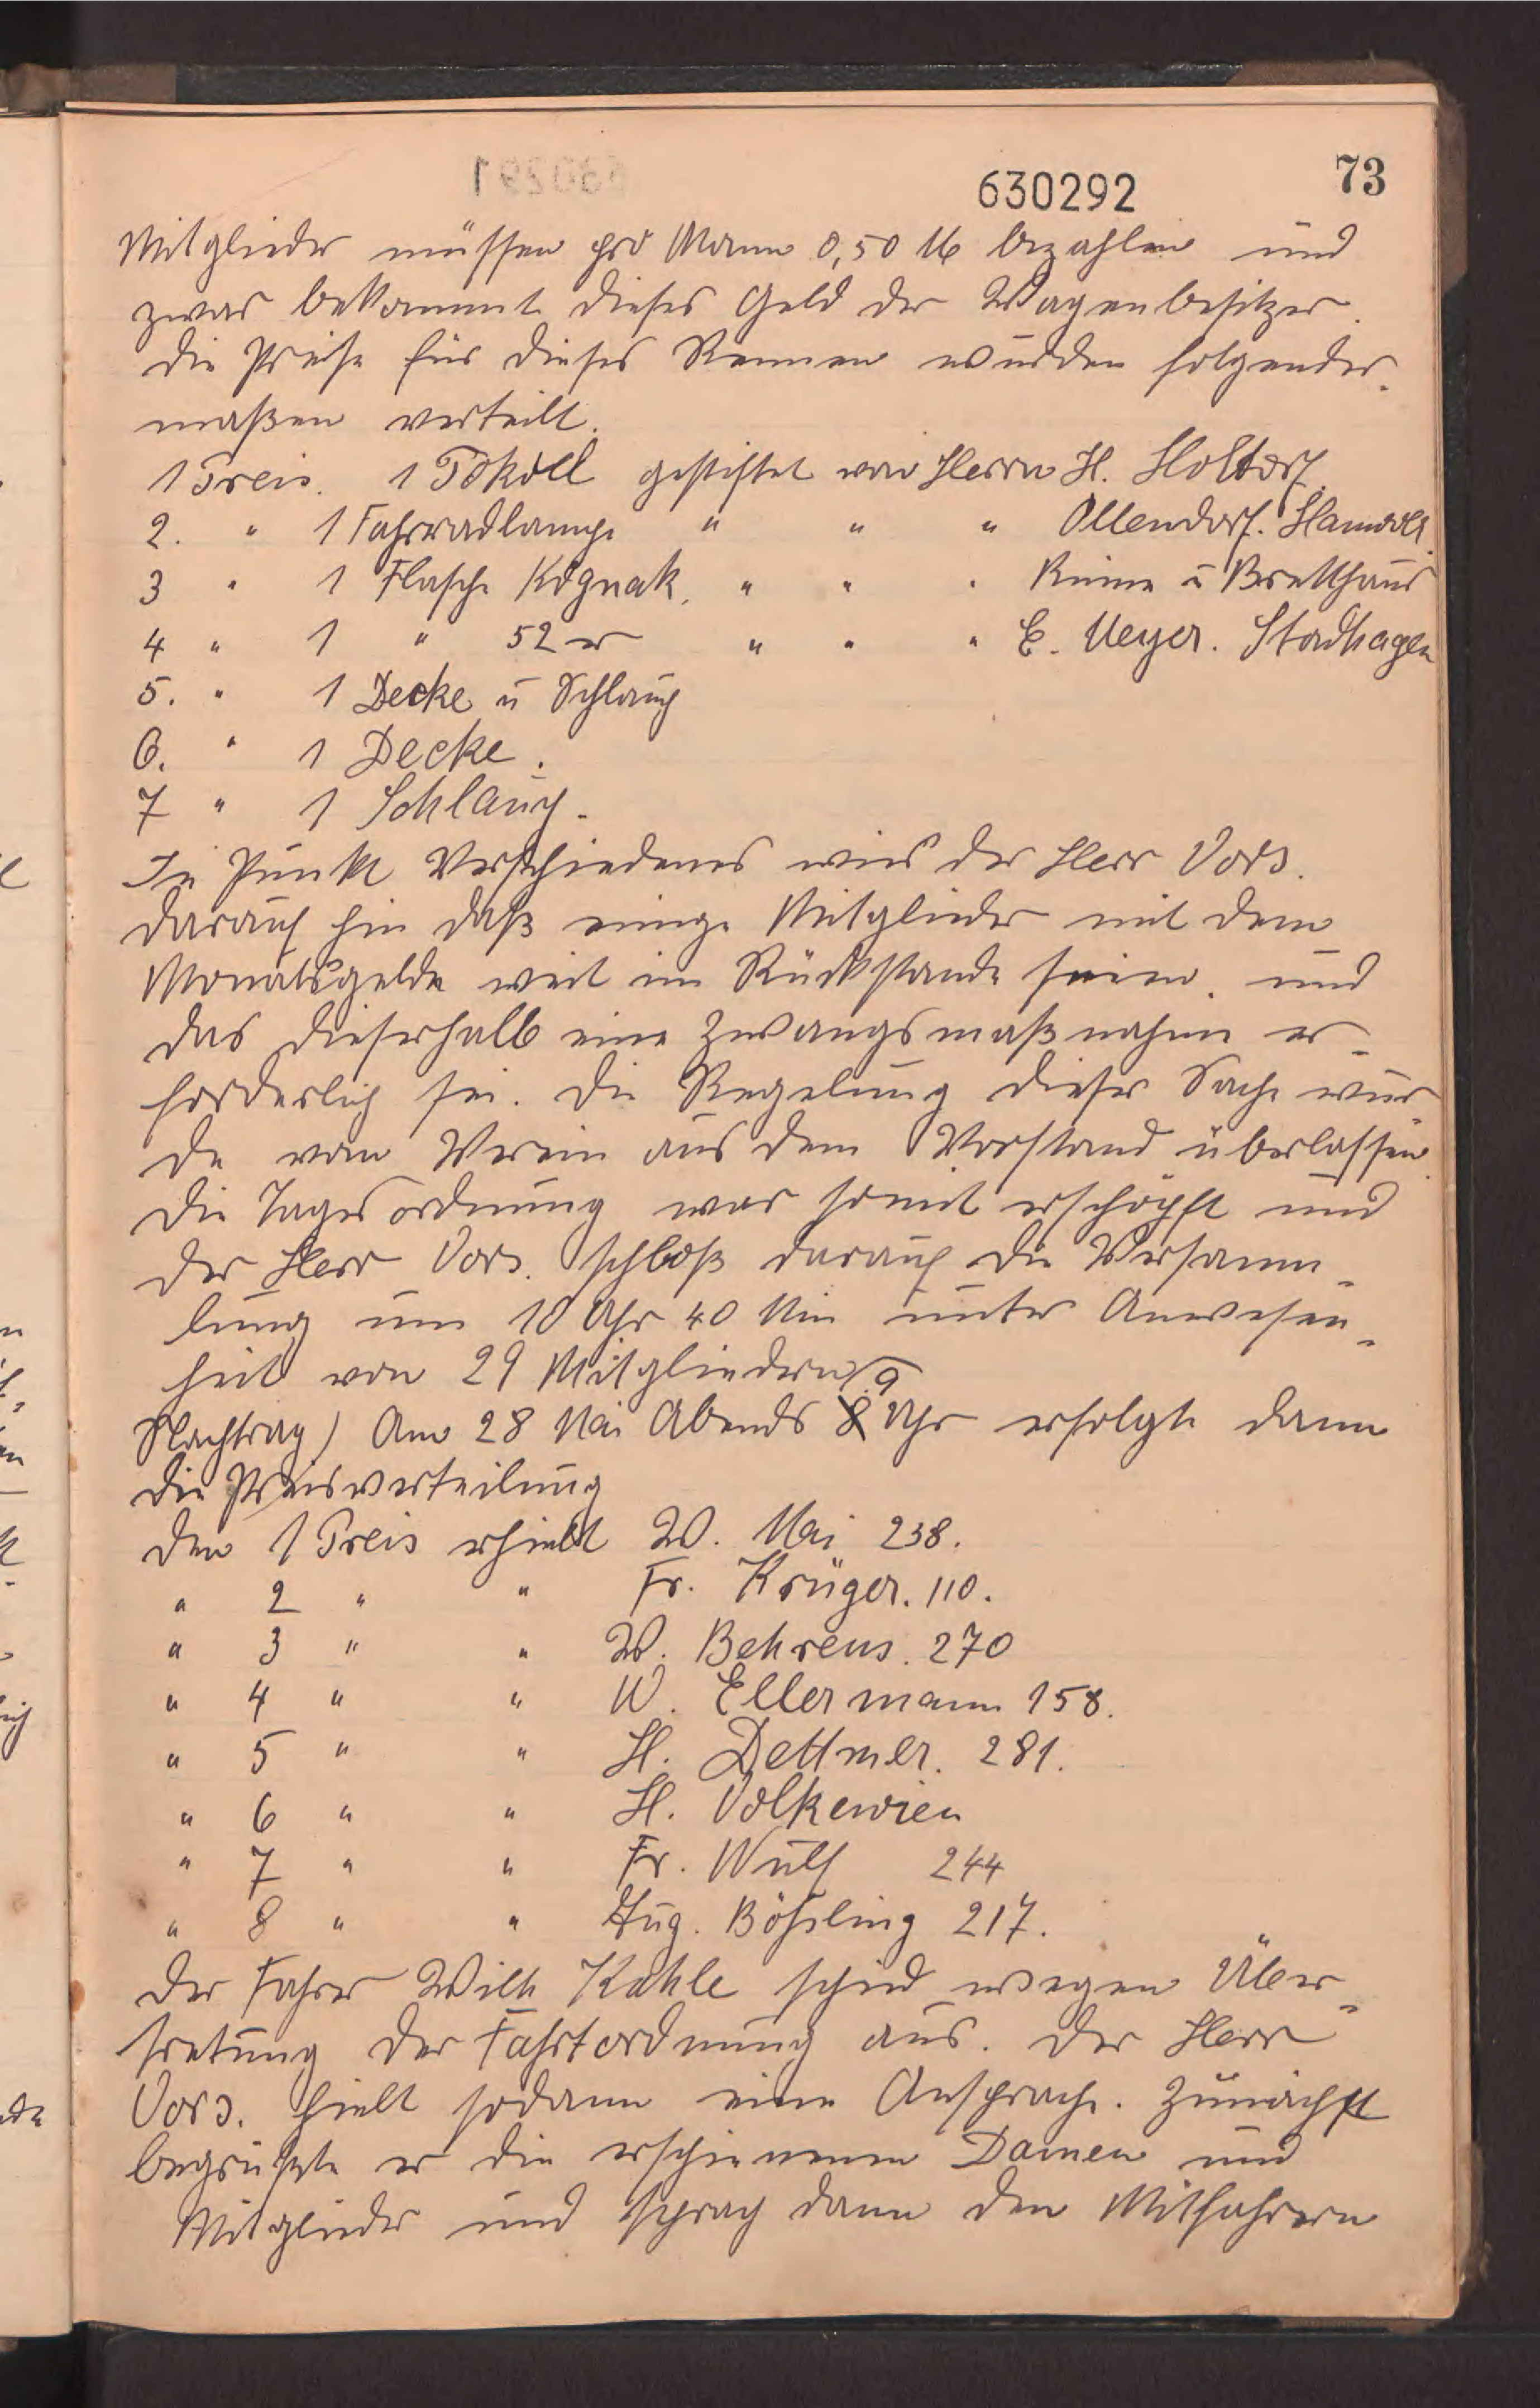 630292
73
Mitglieder müssen pro Mann 0,50 M bezahlen und
zwar bekommt dieses Geld der Wagenbesitzer.
die Preise für dieses Rennen wurden folgender-
maßen verteilt.
1 Preis. 1 Pokoll gestiftet von Herrn H. Holtorf.
2. " 1 Fahrradlampe " " " Ollendorf. Hannover.
3 " 1 Flasche Kognak. " " " Kuime u Bretthaus
4 " 1 " 52er " " " E. Meyer. Stadthagen
5. " 1 Decke u Schlauch
6. " 1 Decke.
7 " 1 Schlauch.
In Punkt Verschiedenes wies der Herr Vors.
darauf hin daß einige Mitglieder mit dem
Monatsgelde weit im Rückstande seien. und
das dieserhalb eine Zwangsmaßnahme er-
forderlich sei. die Regelung dieser Sache wur
de vom Verein aus dem Vorstand überlassen.
die Tagesordnung war somit erschöpft und
der Herr Vors. schloß darauf die Versamm-
lung um 10 Uhr 40 Min unter Anwesen-
heit von 29 Mitgliedern
9
Nachtrag) Am 28 Mai Abends 8 Uhr erfolgte dann
die Preisverteilung
den 1 Preis erhielt W. Mai 238.
" 2 " " Fr. Krüger. 110.
" 3 " " W. Behrens. 270
" 4 " " W. Ellermann 158.
" 5 " " H. Dettmer. 281.
" 6 " " H. Volkewien
" 7 " " Fr. Wulf 244
" 8 " " Aug. Bößling 217.
der Fahrer Wilh Kahle schied wegen Über-
tretung der Fahrtordnung aus. der Herr
Vors. hielt sodann eine Ansprache. Zunächst
begrüßte er die erschienenen Damen und
Mitglieder und sprach dann den Mitfahrern